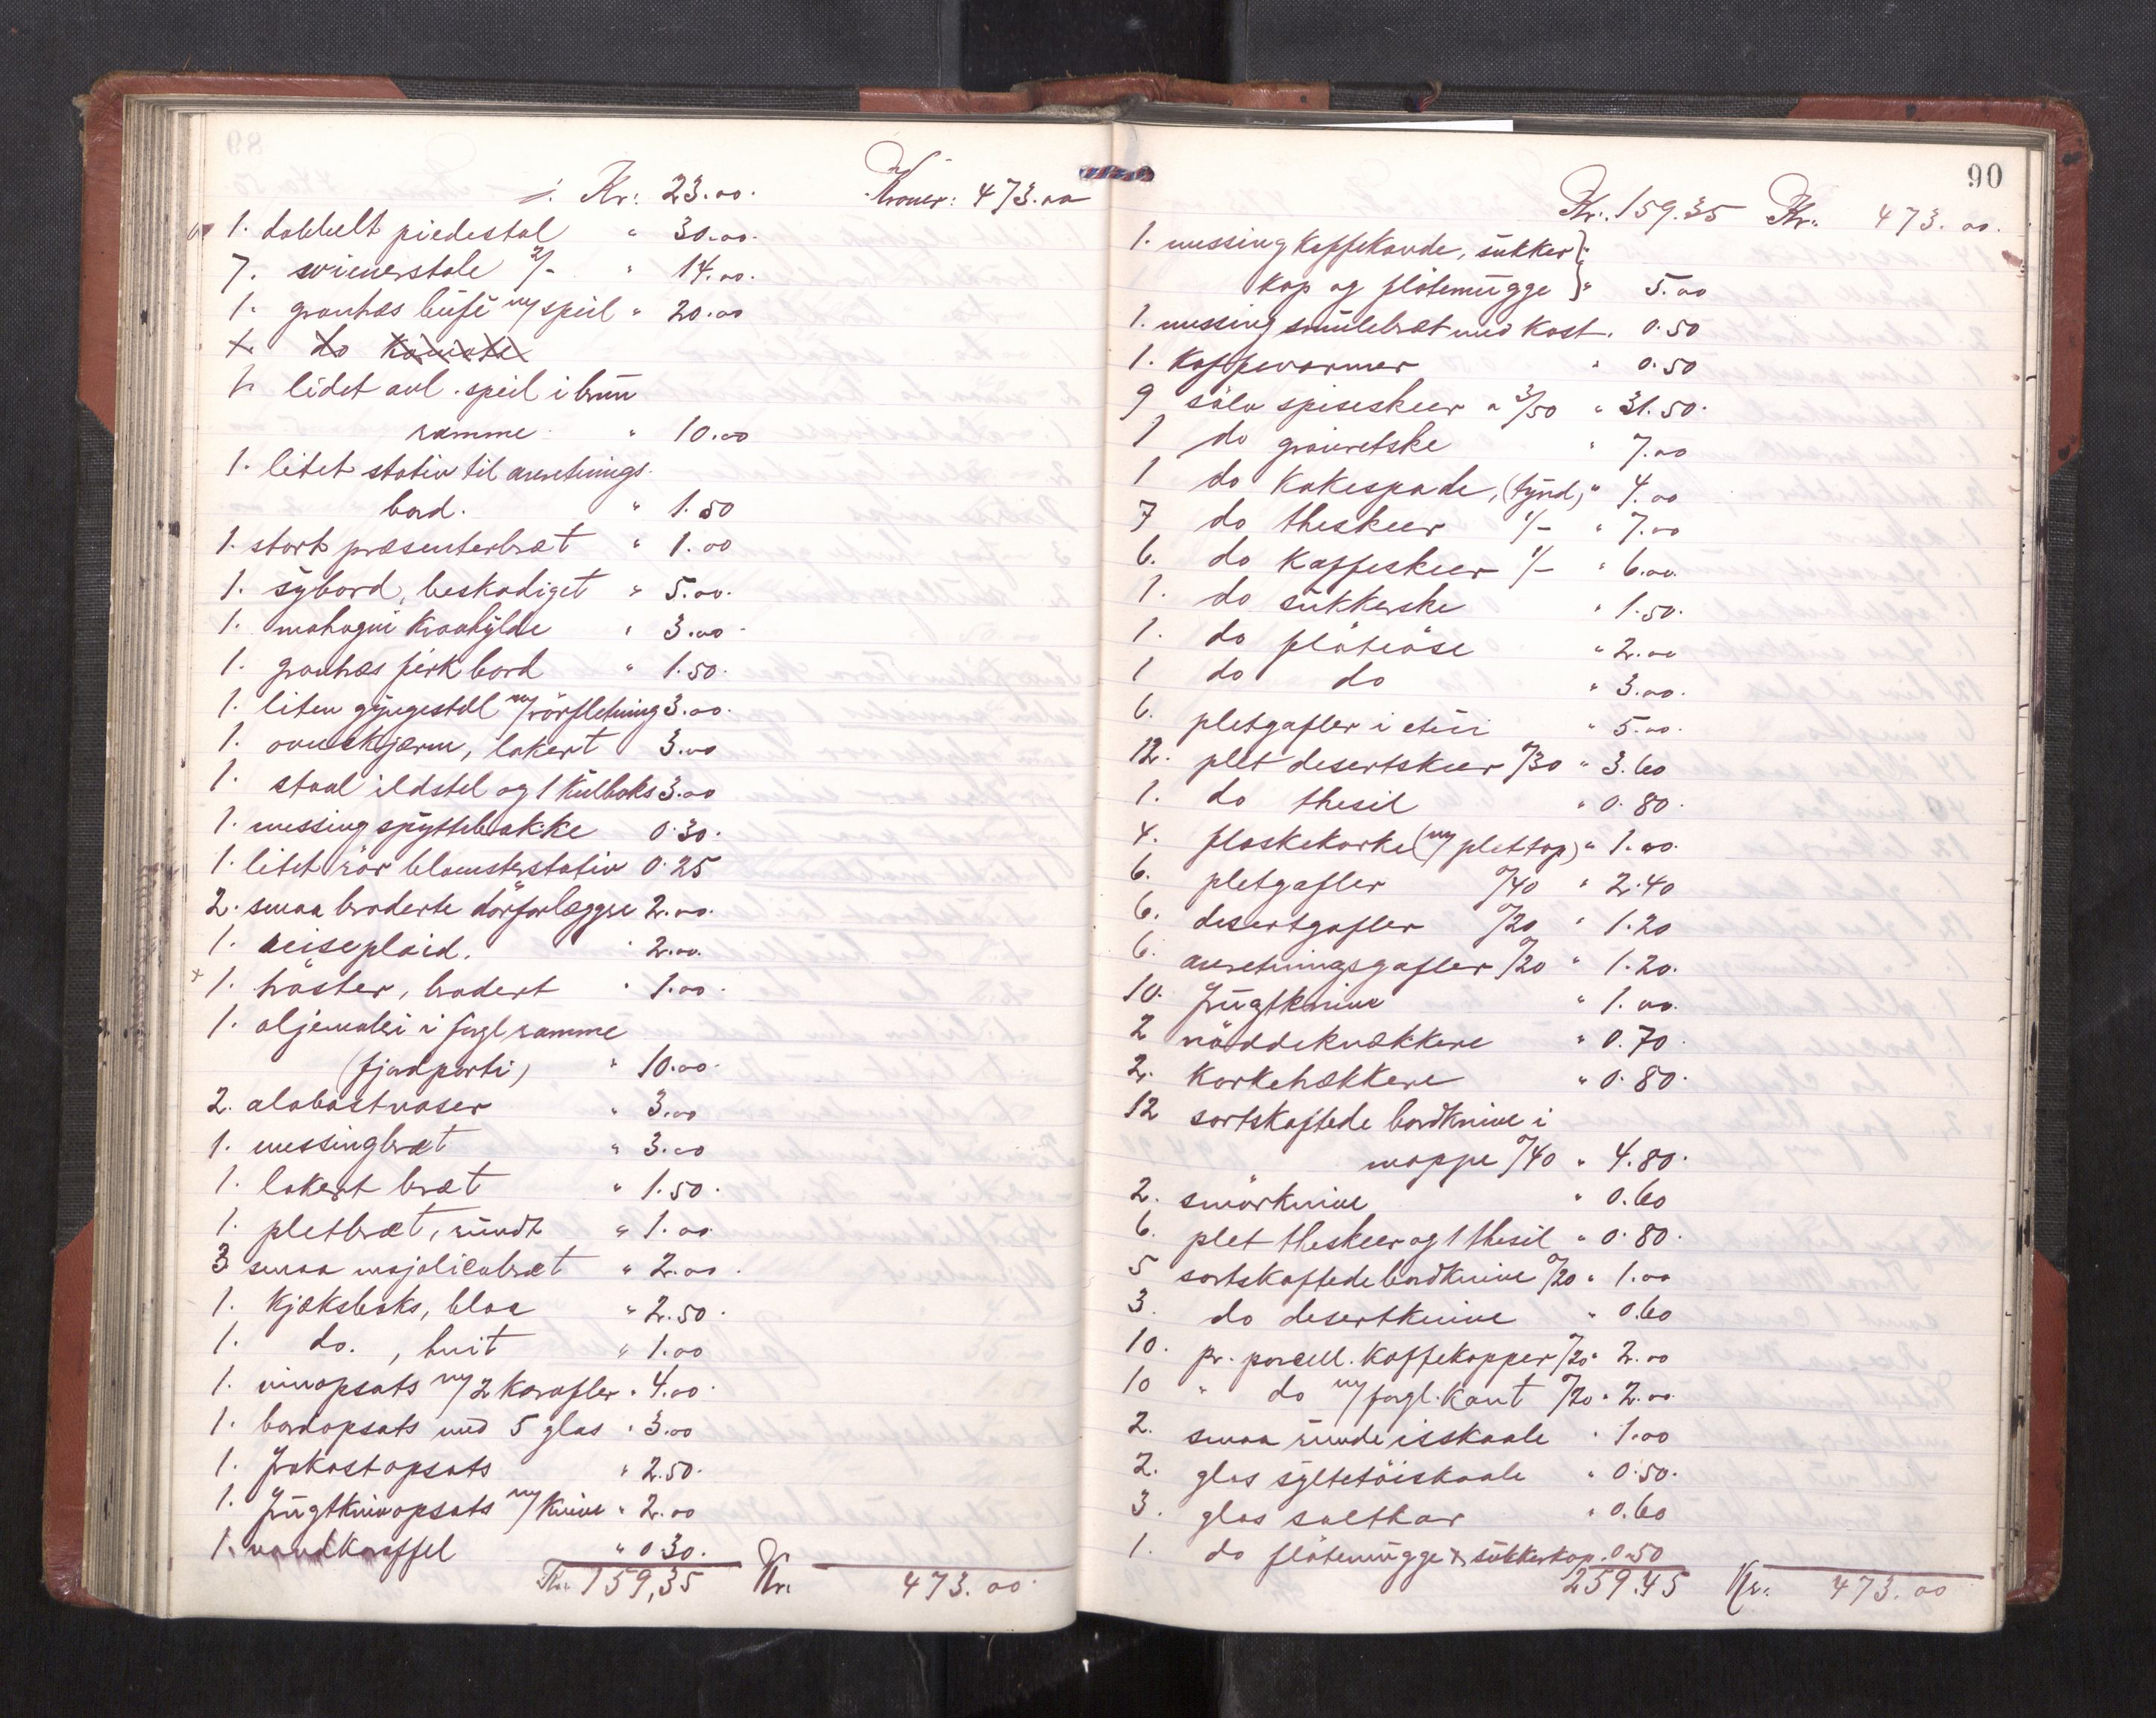 Kr: 23.00. Kroner: 473.00
1. dobbelt piedestal " 30.00.
7. wienerstole 2/- " 14.00.
1. granitræs büfe m/ speil " 20.00
1. do komode
1. lidet avl. speil i brun
ramme " 10.00
1. litet stativ til anretnings-
bord. " 1.50
1. stort præsenterbræt " 1.00
1. sybord, beskadiget " 5.00.
1. mahogni kraahylde " 3.00.
1. grantræs firk bord " 1.50.
1. liten gyngestol m/ rörfletning 3.00.
1. ovnskjærm, lakert 3.00
1. staal ildstel og 1 kulboks 3.00
1. messing spyttebakke 0.30.
1. litet rör blomsterstativ 0.25
2. smaa broderte dörforlæggere 2.00.
1. reiseplaid. " 2.00.
1. töster, brodert " 1.00.
1. oljemaleri i forgl. ramme
(fjordparti) " 10.00.
2. alabastvaser " 3.00
1. messingbræt " 3.00
1. lakert bræt " 1.50.
1. pletbræt, rundt " 1.00
3 smaa majolicabræt " 2.00.
1. kjæksboks, blaa " 2.50.
1. do. , hvit " 1.00
1. vinopsats m/ 2 karafler " 4.00.
1. bordopsats med 5 glas " 3.00
1. frokostopsats " 2.50.
1. frugtknivopsats m/ knive " 2.00
1. vandkaraffel " 0.30.
Kr. 159,35 Kr. 473.00.
90
Kr: 159.35 Kr: 473.00.
1. messing kaffekande, sukker
kop og flötemugge " 5.00
1. messing smulebræt med kost. 0.50
1. kaffevarmer " 0.50
9 sölv spiseskeer a 3/50 " 31.50.
1 do grönretske " 7.00
1 do kakespade, (tynd) " 4.00
7 do theskeer 1/- " 7.00
6. do kaffeskeer 1/- " 6.00.
1. do sukkerske " 1.50.
1. do flöteöse " 2.00
1 do do " 3.00.
6. pletgafler i etui " 5.00.
12. plet desertskeer 0/30 " 3.60
1. do thesil " 0.80.
4. flaskekorke (m/ plettop) " 1.00.
6. pletgafler 0/40 " 2.40
6. desertgafler 0/20 " 1.20
6. anretningsgafler 0/20 " 1.20.
10. frugtknive " 1.00.
2 nöddeknækkere " 0.70.
2. korketrækkere " 0.80.
12 sortskaftede bordknive i
mappe 0/40 " 4.80.
2. smörknive " 0.60
6. plet theskeer og 1 thesil " 0.80.
5 sortskaftede bordknive 0/20 " 1.00
3. do desertknive " 0.60
10. pr. porcell. kaffekopper 0/20 " 2.00
10 " do m/ forgl. kant 0/20 " 2.00.
2. smaa runde isskaale " 1.00
2. glas syltetöiskaale " 0.50.
3. glas saltkar " 0.60
1. do flötemugge & sukkerkop. 0.50
259.45 Kr. 473.00